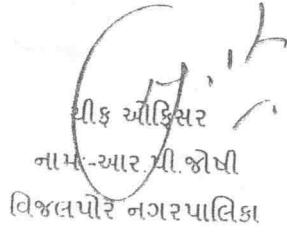 ચીફ ઓફિસર
નામ:-આર.પી.જોષી
વિજલપોર નગરપાલિકા